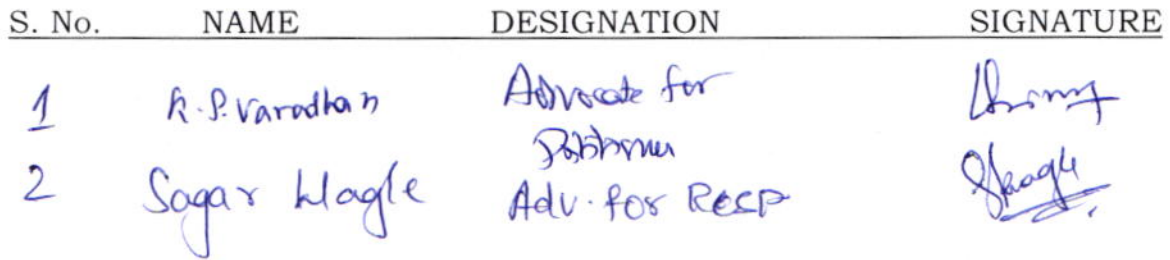 S. No. NAME DESIGNATION SIGNATURE
1 K.P. Varadhan Advocate for
Petitioner
2 Sagar Wagle Adv. for Resp